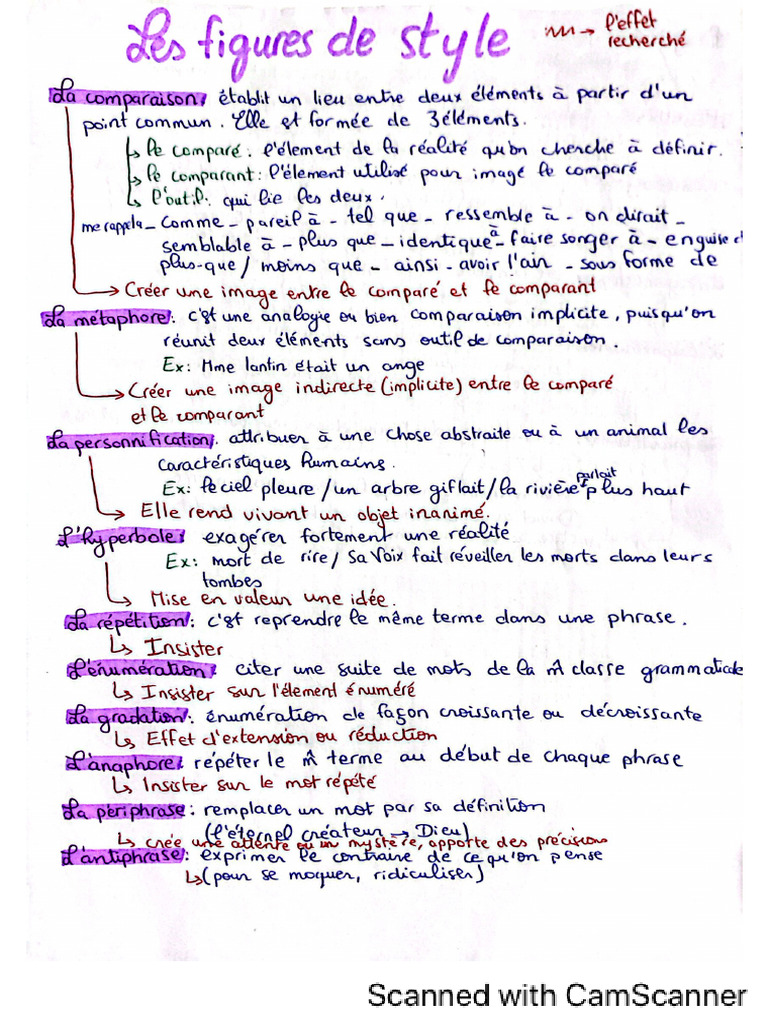 Les figures de style
→ l'effet
recherché
La comparaison: établit un lieu entre deux éléments à partir d'un
point commun. Elle est formée de 3 éléments.
↳ le comparé: l'élement de la réalité qu'on cherche à définir.
↳ le comparant: l'élement utilisé pour imagé le comparé
↳ l'outil: qui lie les deux.
me rappela_ comme _ pareil à _ tel que _ ressemble à _ on dirait _
semblable à _ plus que _ identique à _ faire songer à _ en guise d
plus-que / moins que _ ainsi - avoir l'air _ sous forme de
→ Créer une image entre le comparé et le comparant
La métaphore: c'est une analogie ou bien comparaison implicite, puisqu'on
réunit deux éléments sans outil de comparaison.
Ex: Mme lantin était un ange
→ Créer une image indirecte (implicite) entre le comparé
et le comparant
La personnification: attribuer à une chose abstraite ou à un animal les
caractéristiques humains.
Ex: le ciel pleure / un arbre giflait / la rivière parlait plus haut
→ Elle rend vivant un objet inanimé.
L'hyperbole: exagérer fortement une réalité
Ex: mort de rire / Sa voix fait réveiller les morts dans leurs
tombes
↳ Mise en valeur une idée.
La répétition: c'est reprendre le même terme dans une phrase.
↳ Insister
L'énumération: citer une suite de mots de la m̂ classe grammaticale
↳ Insister sur l'élement énuméré
La gradation: énumération de façon croissante ou décroissante
↳ Effet d'extension ou réduction
L'anaphore: répéter le m̂ terme au début de chaque phrase
↳ Insister sur le mot répété
La périphrase: remplacer un mot par sa définition
(l'éternel créateur → Dieu)
↳ crée une attente ou un mystère, apporte des précisions
L'antiphrase: exprimer le contraire de ce qu'on pense
↳ (pour se moquer, ridiculiser)
Scanned with CamScanner